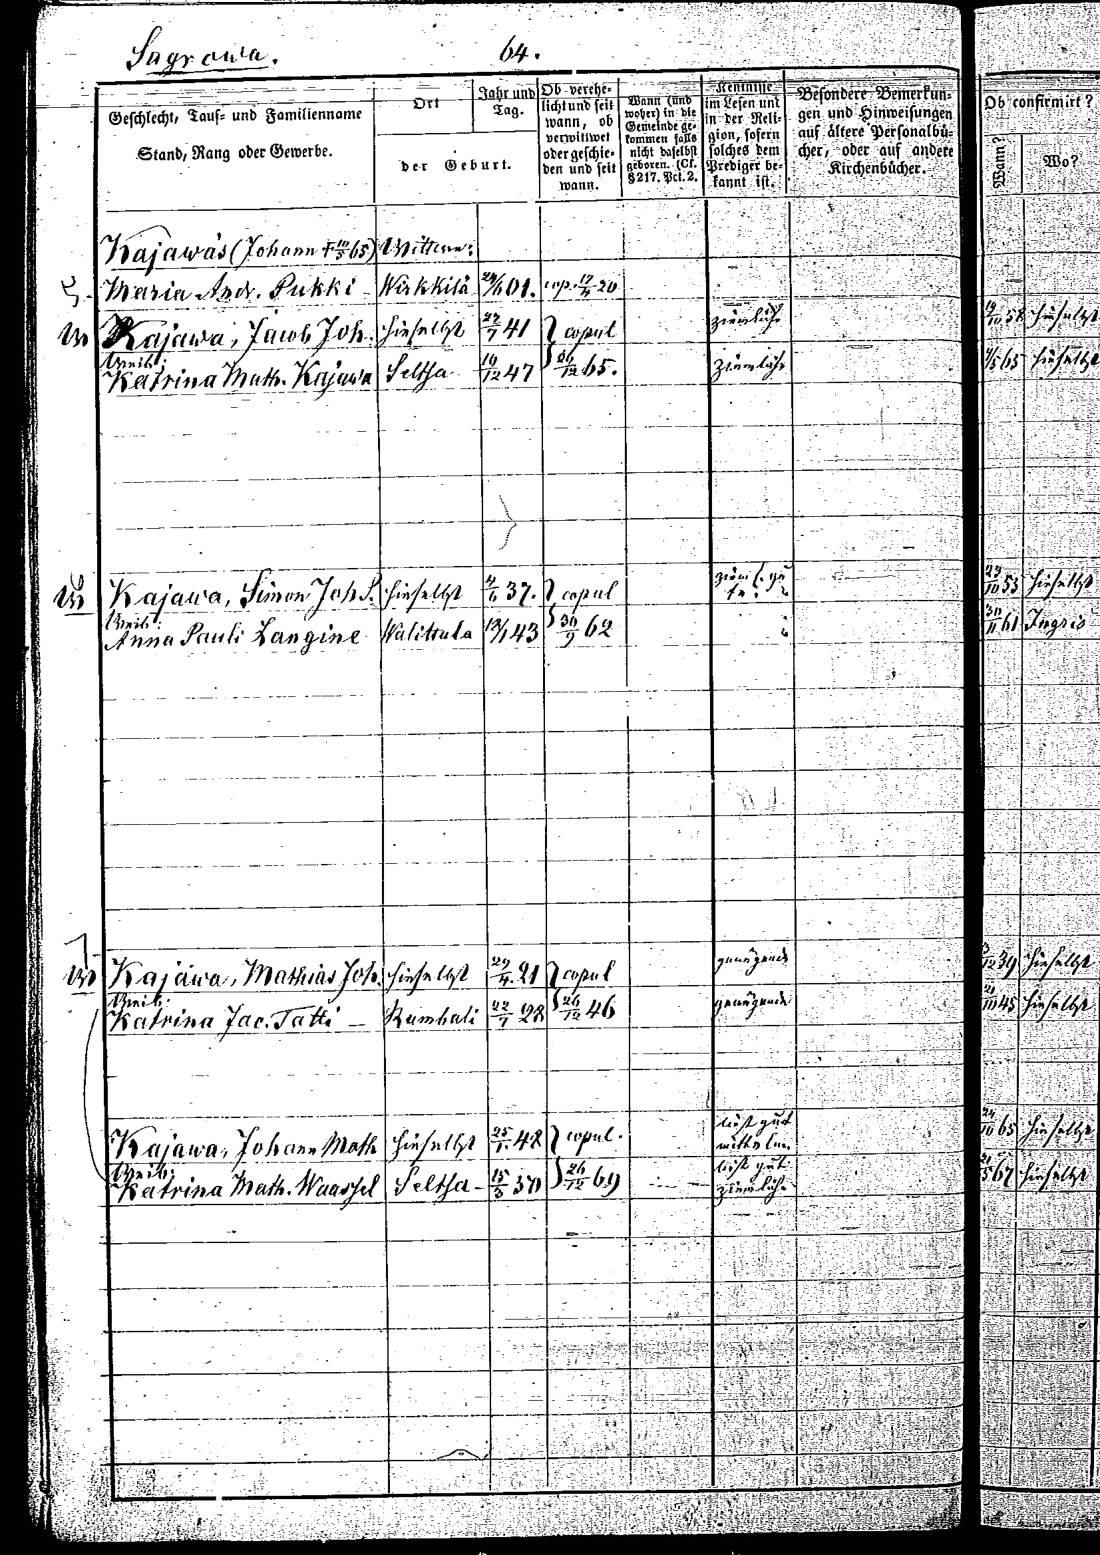 Sagrowa. 64.
Geschlecht, Tauf- und Familienname
Stand, Rang oder Gewerbe.
Ort
der Geburt.
Jahr und
Tag.
Ob verehe-
licht und seit
wann, ob
verwittwet
oder geschie-
den und seit
wann.
Wann (und
woher) in die
Gemeinde ge-
kommen falls
nicht daselbst
geboren. (Cf.
§ 217. Pct. 2.
Kentnisse
im Lesen und
in der Reli-
gion, sofern
solches dem
Prediger be-
kannt ist.
Besondere Bemerkun-
gen und Hinweisungen
auf ältere Personalbü-
cher, oder auf andere
Kirchenbücher.
Ob confirmirt?
Wann?
Wo?
Kajawas (Johann † 65) Wittwe:
Maria Andr. Pukki Wirkkilä 01. cop. 20
Kajawa, Jacob Joh. hieselbst 27/7 41 copul ziemlich 58 hieselbst
Weib:
Katrina Math. Kajawa Seltsa 19/12 47 26/12 65. ziemlich 65 hieselbst
Kajawa, Simon Joh. S. hieselbst 37. copul 53 hieselbst
Weib:
Anna Pauli Langine Walittula 43 30/9 62 61 Ingris
Kajawa, Mathias Joh. hieselbst 29/4. 21 copul genügend 39 hieselbst
Weib:
Katrina Jac. Tatti Rumbali 22/7 28 26/12 46 genügend 45 hieselbst
Kajawa, Johann Math hieselbst 25/1. 48 copul. liest gut 65 hieselbst
Weib:
Katrina Math. Waassel Seltsa 15/3 50 26/12 69 liest gut ziemlich 67 hieselbst